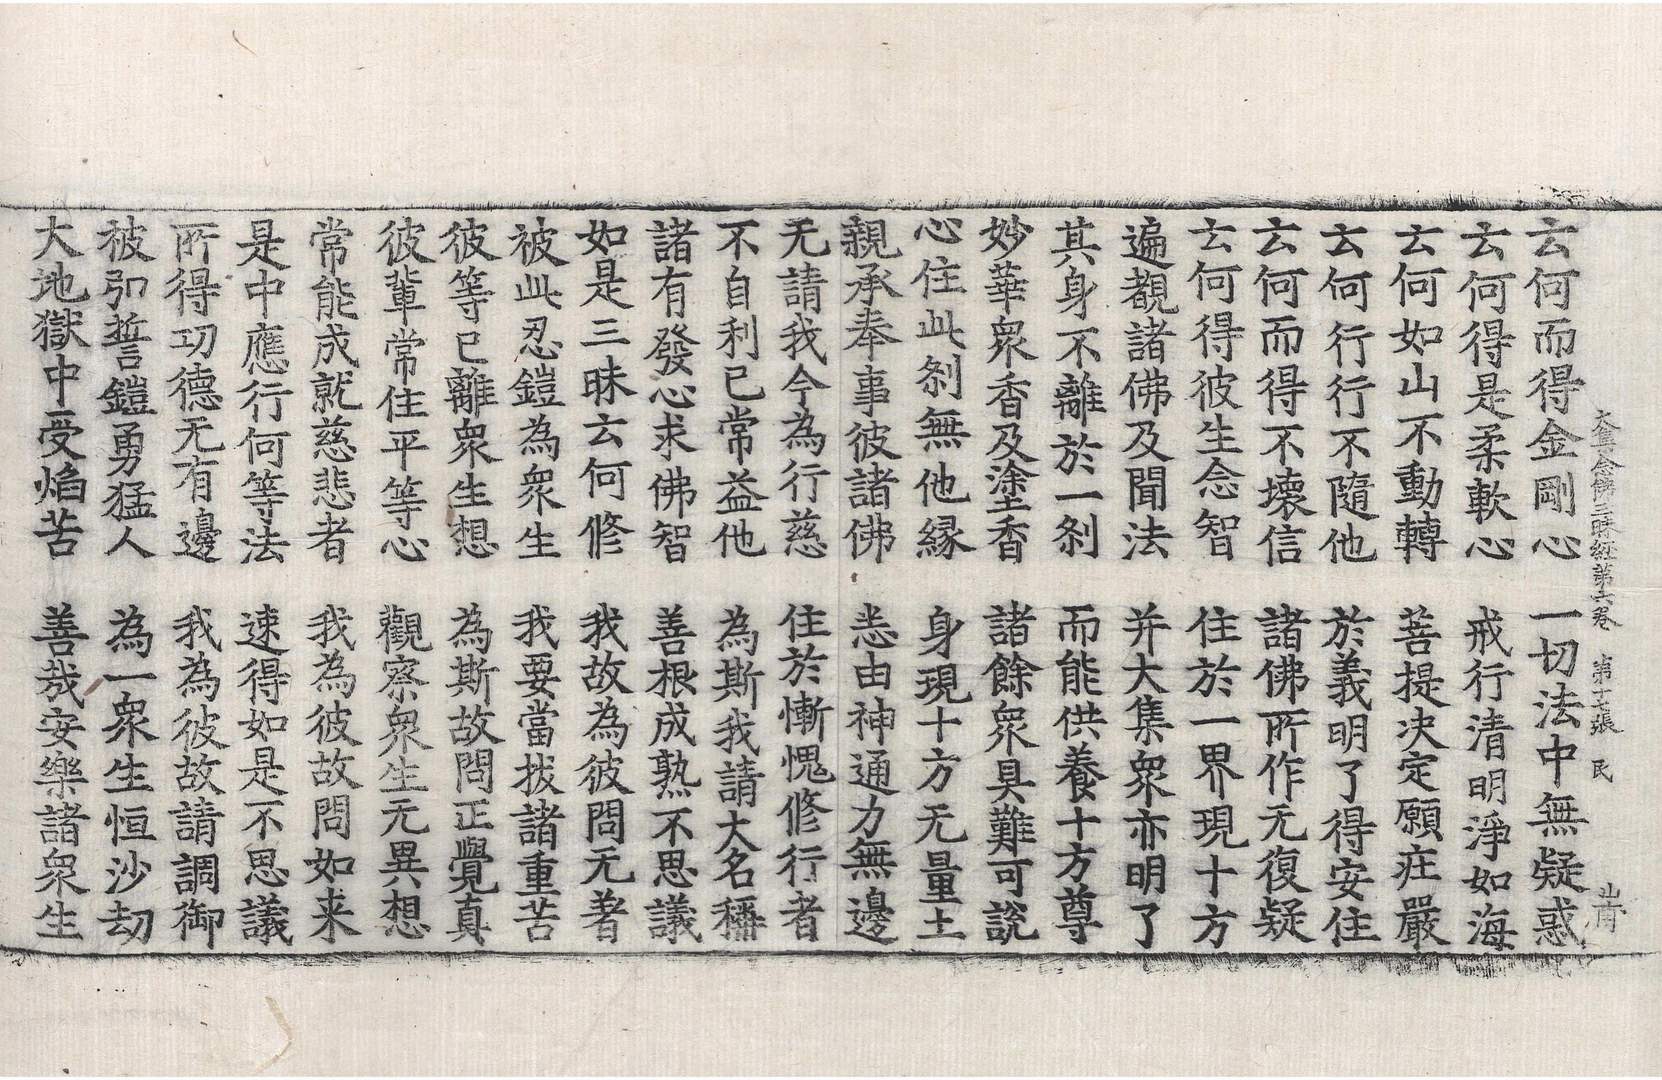 大集念佛三昧經第六卷　第十七張　民
云何而得金剛心　一切法中無疑惑
云何得是柔軟心　戒行清明淨如海
云何如山不動轉　菩提決定願庄嚴
云何行行不隨他　於義明了得安住
云何而得不壞信　諸佛所作无復疑
云何得彼生念智　住於一界現十方
遍觀諸佛及聞法　并大集衆亦明了
其身不離於一刹　而能供養十方尊
妙華衆香及塗香　諸餘衆具難可說
心住此刹無他緣　身現十方无量土
親承奉事彼諸佛　悉由神通力無邊
无請我今為行慈　住於慚愧修行者
不自利已常益他　為斯我請大名稱
諸有發心求佛智　善根成熟不思議
如是三昧云何修　我故為彼問无著
被此忍鎧為衆生　我要當拔諸重苦
彼等已離衆生想　為斯故問正覺真
彼輩常住平等心　觀察衆生无異想
常能成就慈悲者　我為彼故問如来
是中應行何等法　速得如是不思議
所得功德无有邊　我為彼故請調御
被弘誓鎧勇猛人　為一衆生恒沙劫
大地獄中受焰苦　善哉安樂諸衆生